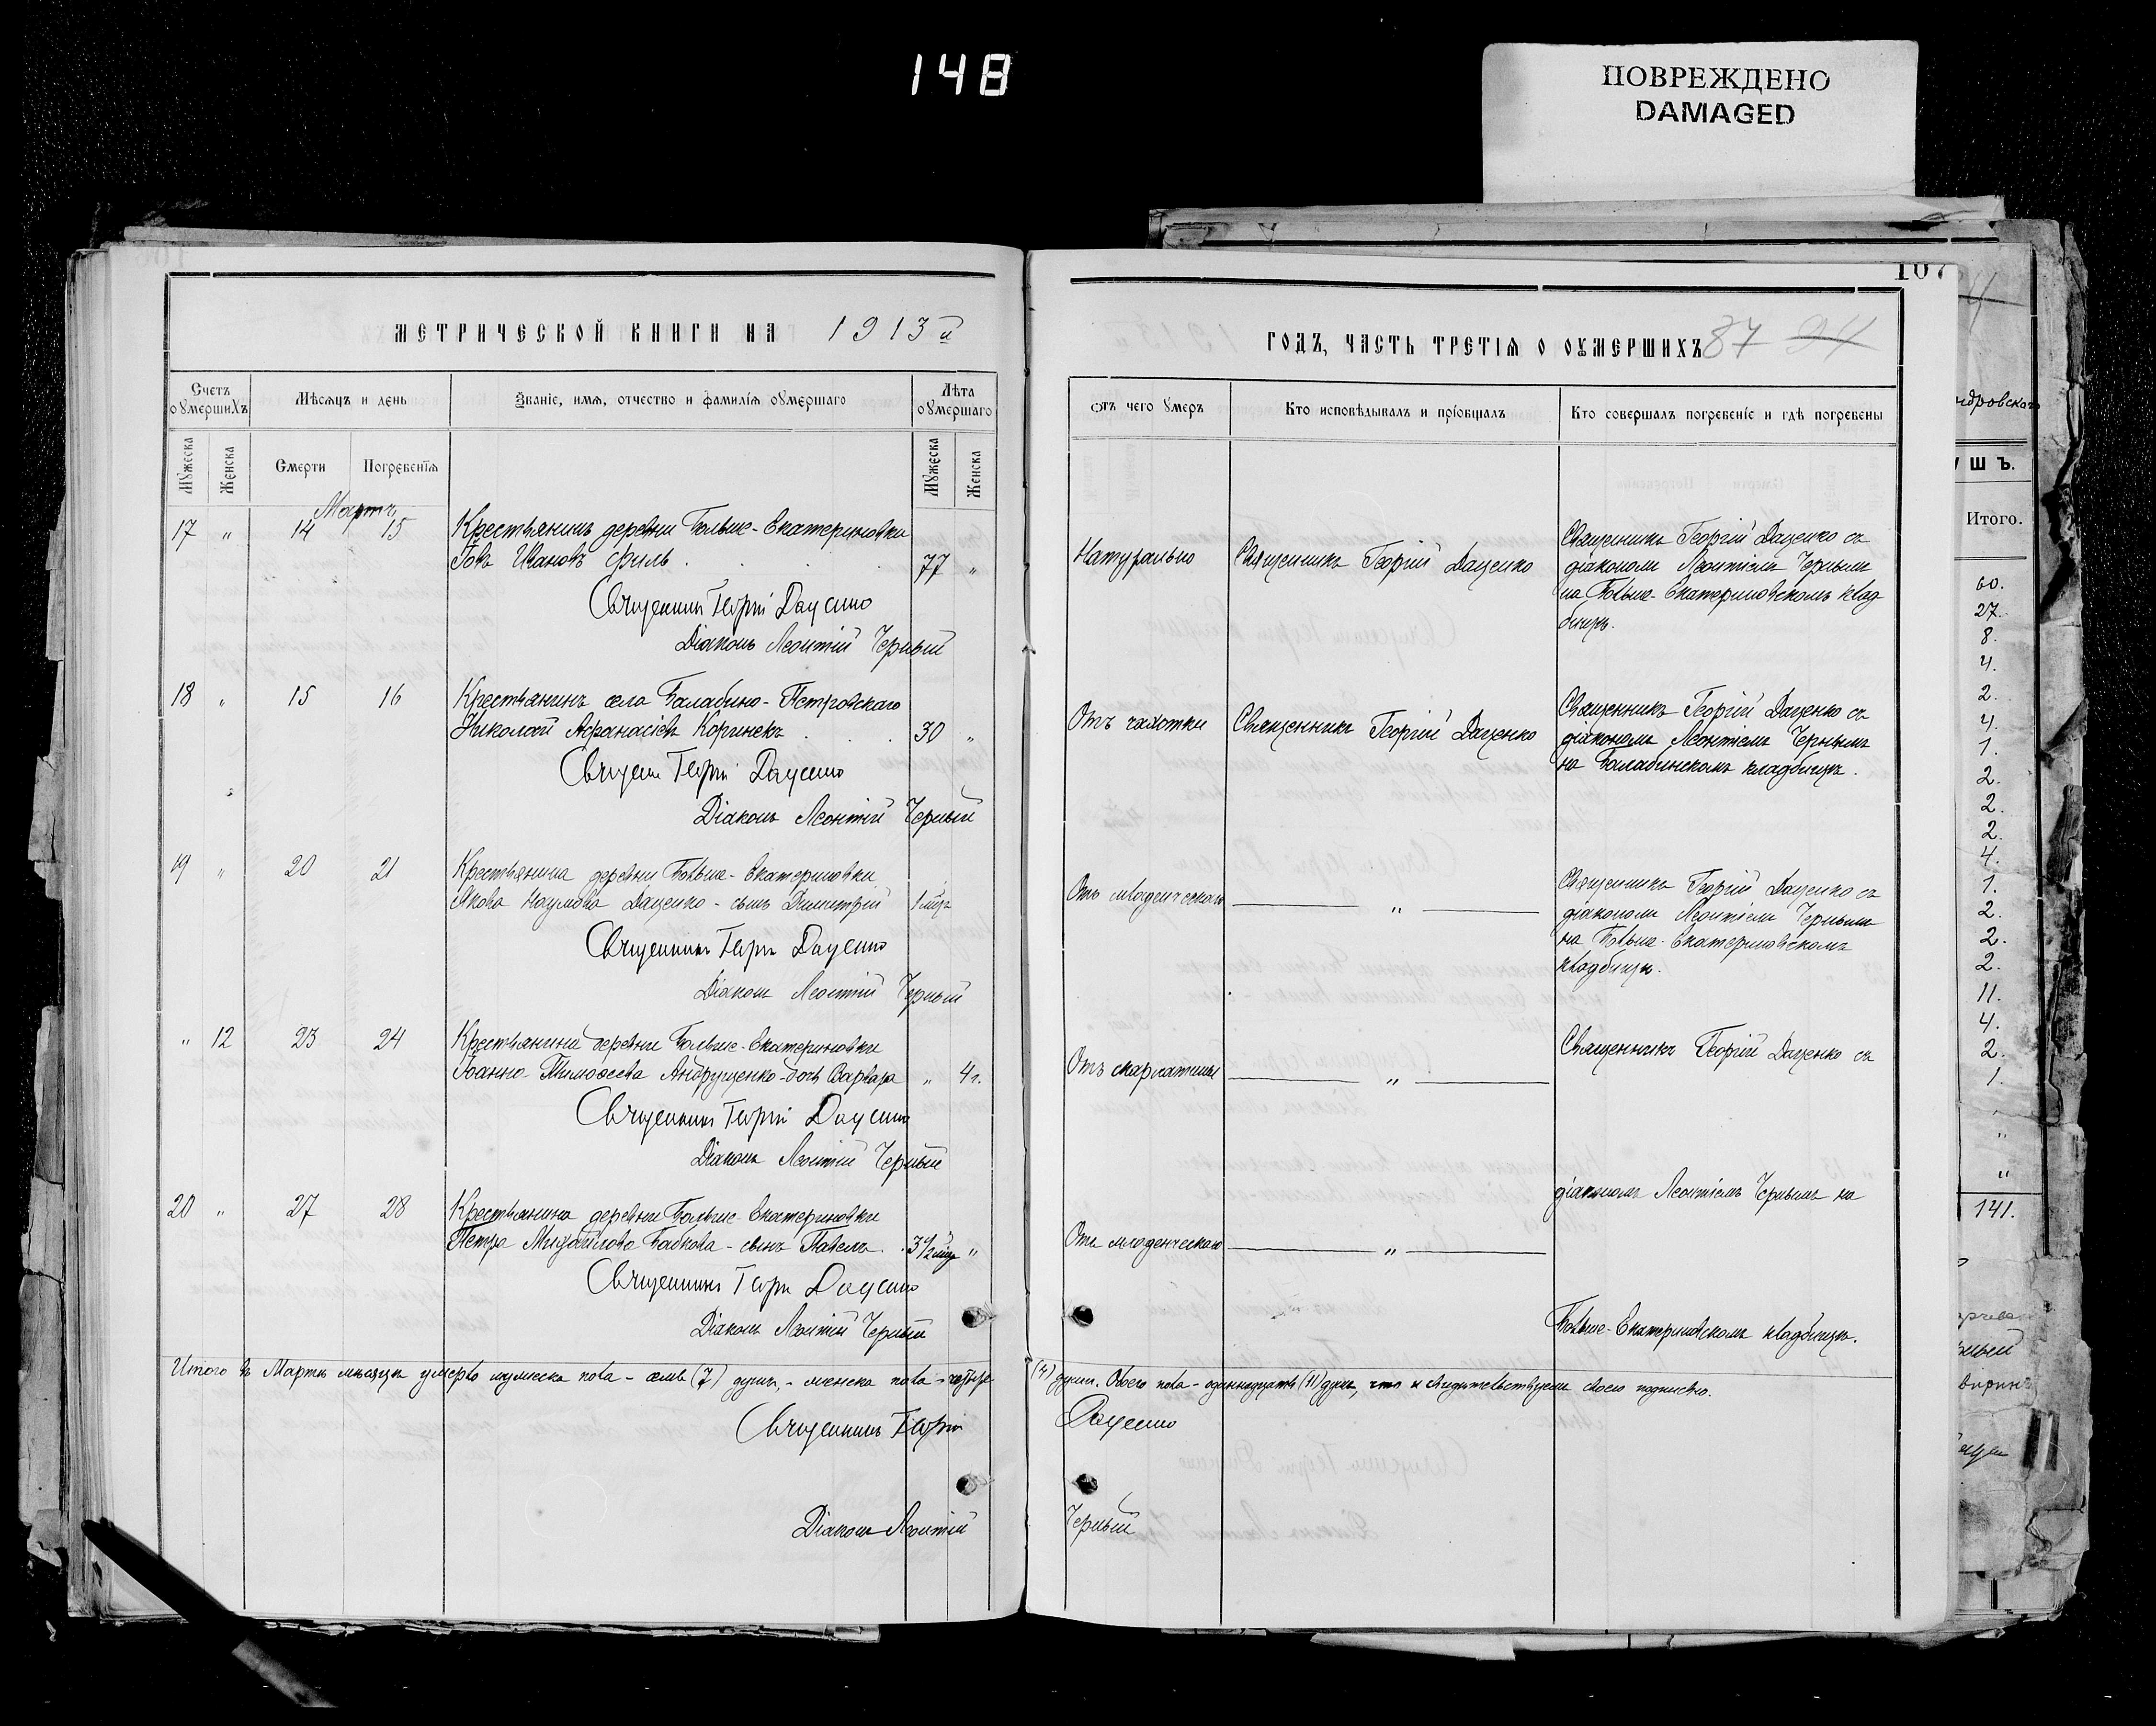 148
ПОВРЕЖДЕНО
DAMAGED
107
МЕТРИЧЕСКОЙ КНИГИ НА 1913й
ГОДЪ, ЧАСТЬ ТРЕТІЯ О ОУМЕРШИХЪ 87 24
Счетъ оумершихъ
Мѣсяцъ и день
Званіе, имя, отчество и фамилія оумершаго
Лѣта оумершаго
Мужеска
Женска
Смерти
Погребенія
Мужеска
Женска
Отъ чего умеръ
Кто исповѣдывалъ и пріобщалъ
Кто совершалъ погребеніе и гдѣ погребены
Мартъ
17 " 14 15 Крестьянинъ деревни Больше-Екатериновки
Іовъ Ивановъ Филь 77 "
Священникъ Георгій Даценко
Діаконъ Леонтій Черный
Натурально
Священникъ Георгій Даценко
Священникъ Георгій Даценко съ
діакономъ Леонтіемъ Чернымъ
на Больше-Екатериновскомъ клад
бищѣ.
18 " 15 16 Крестьянинъ села Балабино-Петровскаго
Николай Афанасіевъ Коринекъ 30 "
Священ Георгій Даценко
Діаконъ Леонтій Черный
Отъ чахотки
Священникъ Георгій Даценко
Священникъ Георгій Даценко съ
діакономъ Леонтіемъ Чернымъ
на Балабинскомъ кладбищѣ.
19 " 20 21 Крестьянина деревни Больше-Екатериновки
Якова Наумова Даценко - сынъ Димитрій 1 мѣс
Священникъ Георгій Даценко
Діаконъ Леонтій Черный
Отъ младенческаго "
Священникъ Георгій Даценко съ
діакономъ Леонтіемъ Чернымъ
на Больше-Екатериновскомъ
кладбищѣ.
" 12 23 24 деревни Больше-Екатериновки
Тимофеева Андрущенко - дочь Варвара " 4 г.
Священникъ Георгій Даценко
Діаконъ Леонтій Черный
Отъ скарлатины "
Священникъ Георгій Даценко съ
20 " 27 28 Крестьянина деревни Больше-Екатериновки
Петра Михайлова Бабкова - сынъ Павелъ 3 1/2 мѣс "
Священникъ Георгій Даценко
Діаконъ Леонтій Черный
Отъ младенческаго "
діакономъ Леонтіемъ Чернымъ на
Больше-Екатериновскомъ кладбищѣ.
Итого въ Мартѣ мѣсяцѣ умерло мужеска пола - семь (7) душъ, - женска пола - четыре
(4) души. Обоего пола - одиннадцать (11) душъ, что и свидѣтельствуемъ своею подписью.
Священникъ Георгій Даценко
Діаконъ Леонтій Черный
УШЪ.
Итого.
60.
27.
8.
4.
2.
4.
1.
2.
2.
2.
4.
1.
2.
2.
2.
11.
4.
2.
1.
"
"
"
141.